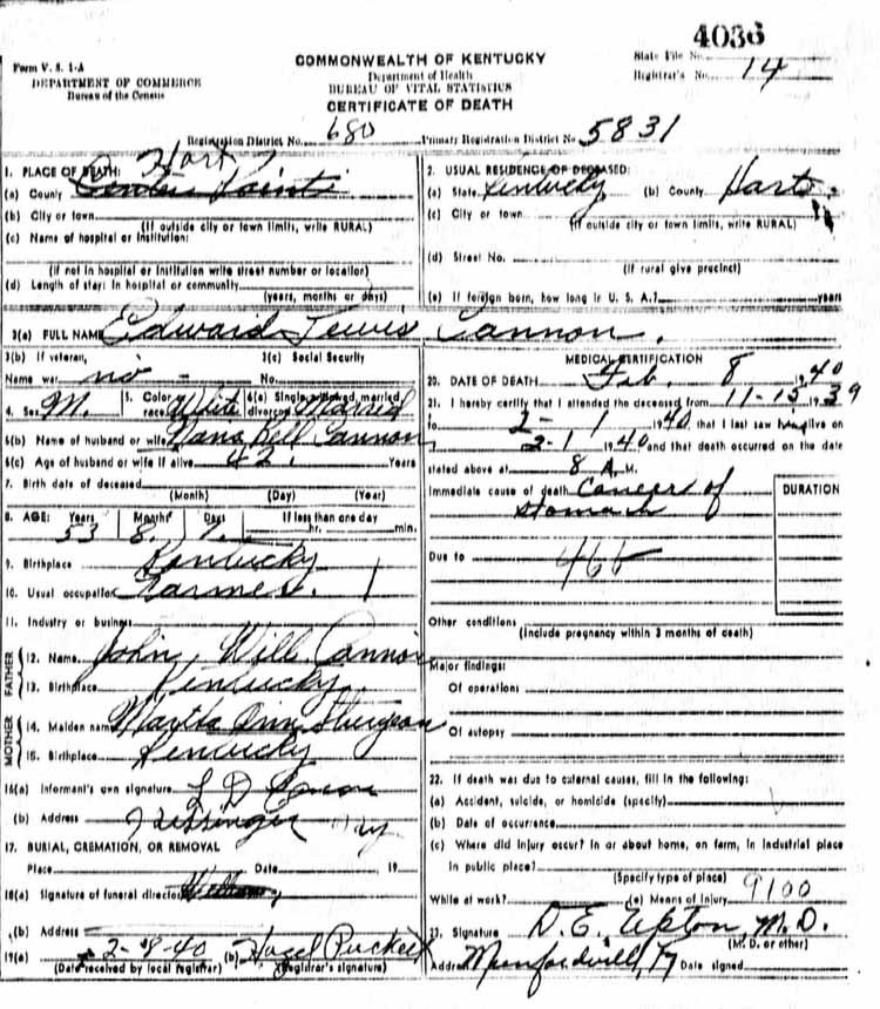 4036
Form V. S. 1-A
DEPARTMENT OF COMMERCE
Bureau of the Census
COMMONWEALTH OF KENTUCKY
Department of Health
BUREAU OF VITAL STATISTICS
CERTIFICATE OF DEATH
State File No.
Registrar's No. 14
Registration District No. 680 Primary Registration District No. 5831
1. PLACE OF DEATH: Hart
(a) County
(b) City or town
(If outside city or town limits, write RURAL)
(c) Name of hospital or institution:
(If not in hospital or institution write street number or location)
(d) Length of stay: In hospital or community
(years, months or days)
2. USUAL RESIDENCE OF DECEASED:
(a) State Kentucky (b) County Hart
(c) City or town
(If outside city or town limits, write RURAL)
(d) Street No.
(If rural give precinct)
(e) If foreign born, how long in U. S. A.? years
3(a) FULL NAME Edward Lewis Cannon.
3(b) If veteran,
Name war no -
3(c) Social Security
No.
4. Sex M. 5. Color race White 6(a) Single, widowed, married, divorced Married
6(b) Name of husband or wife Nana Bell Cannon
6(c) Age of husband or wife if alive 42. Years
7. Birth date of deceased
(Month) (Day) (Year)
8. AGE: Years Months Days If less than one day
53 8. hr. min.
9. Birthplace Kentucky
10. Usual occupation Farmer.
11. Industry or business
FATHER
12. Name John Will Cannon
13. Birthplace Kentucky
MOTHER
14. Maiden name Martha Ann Sturgeon
15. Birthplace Kentucky
16(a) Informant's own signature L D
(b) Address Ky
17. BURIAL, CREMATION, OR REMOVAL
Place Date 19
18(a) Signature of funeral director
(b) Address
19(a) 2-8-40 (b) Hazel Puckett
(Date received by local registrar) (Registrar's signature)
MEDICAL CERTIFICATION
20. DATE OF DEATH Feb. 8 1940
21. I hereby certify that I attended the deceased from 11-15 1939
to 2- 1 1940 that I last saw him alive on
2-1 1940 and that death occurred on the date
stated above at 8 A. M.
Immediate cause of death Cancer of
stomach
DURATION
Due to 46b
Other conditions
(Include pregnancy within 3 months of death)
Major findings:
Of operations
Of autopsy
22. If death was due to external causes, fill in the following:
(a) Accident, suicide, or homicide (specify)
(b) Date of occurrence
(c) Where did injury occur? In or about home, on farm, in industrial place
in public place?
(Specify type of place)
While at work? (e) Means of injury 9100
23. Signature D. E. Upton M. D.
(M. D. or other)
Address Munfordville, Ky Date signed